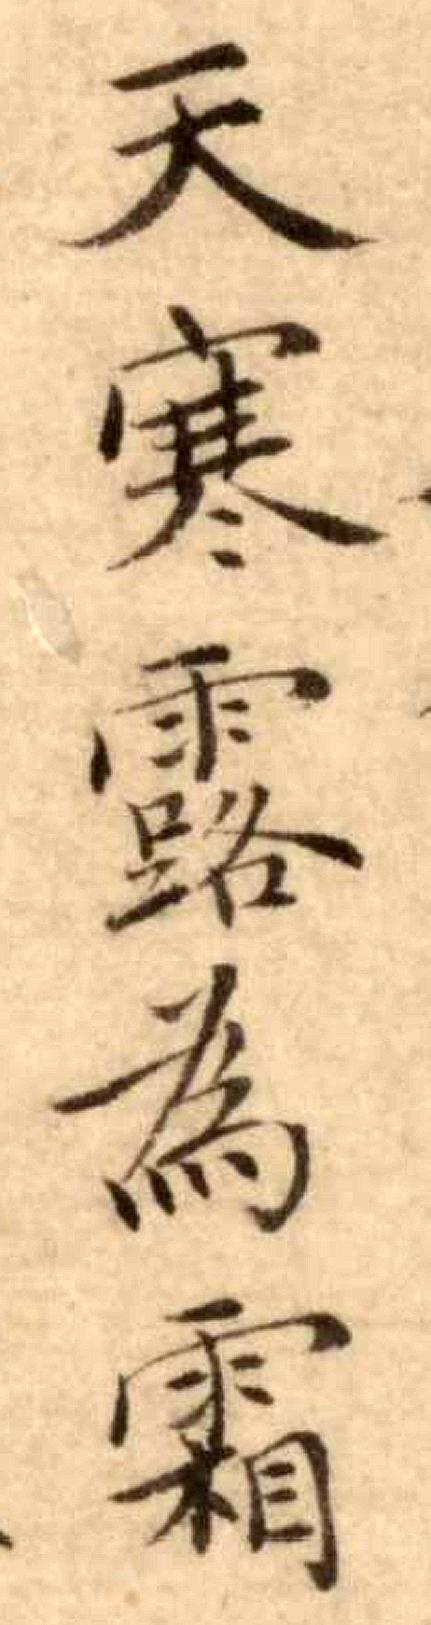 天寒露為霜